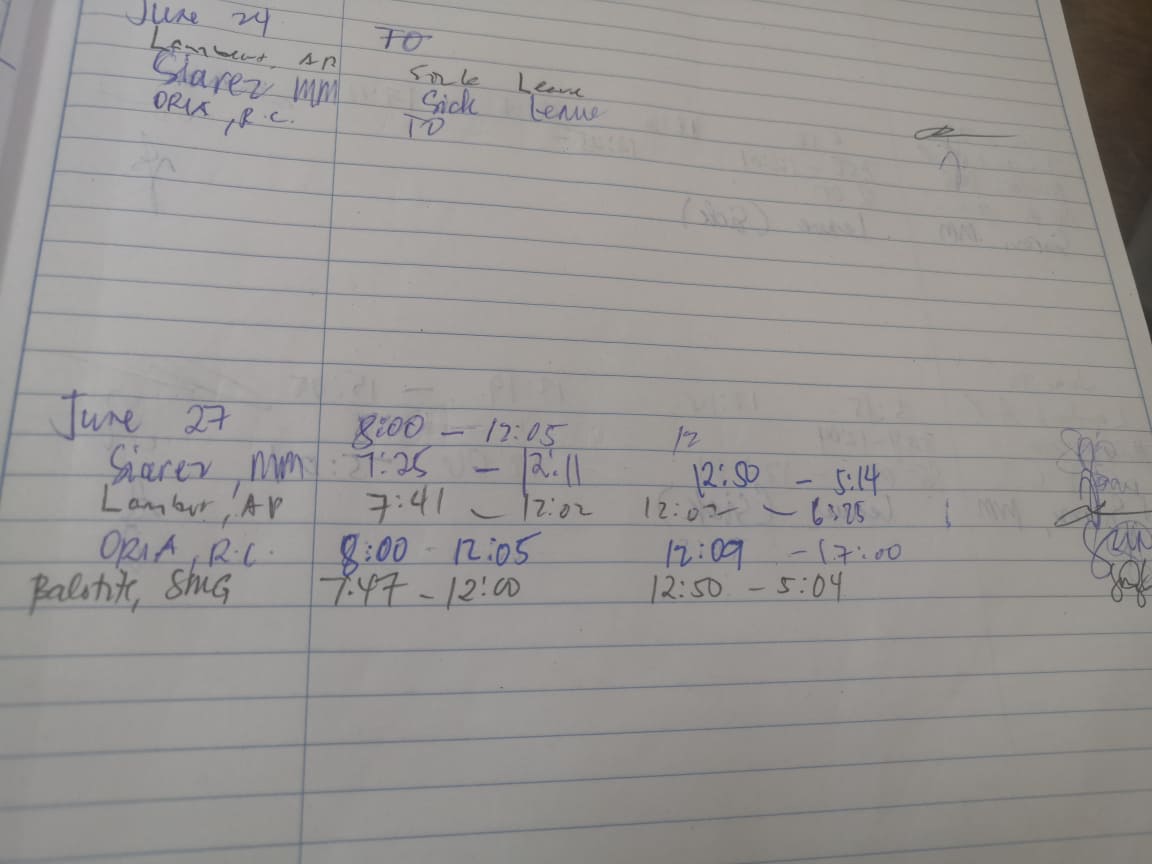 June 24 TO
Lambert, AP Sick Leave
Siarez MM Sick Leave
ORIA, R.C. TO
June 27 8:00 - 12:05 12
Siarez, MM 7:25 - 12:11 12:50 - 5:14
Lambert, AP 7:41 - 12:02 12:02 - 6:25
ORIA, R.C. 8:00 - 12:05 12:09 - 17:00
SMG 7:47 - 12:00 12:50 - 5:04